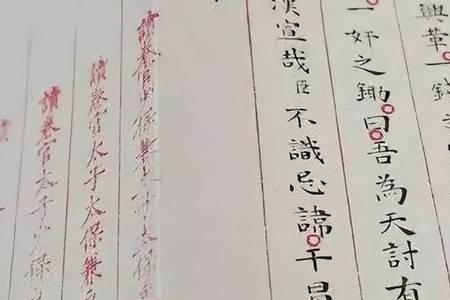 興革一
一奸之鋤曰吾為天討有
漢宣哉臣不識忌諱干冒
讀卷官少保兼太子太保
讀卷官太子太保兼
讀卷官太子少保